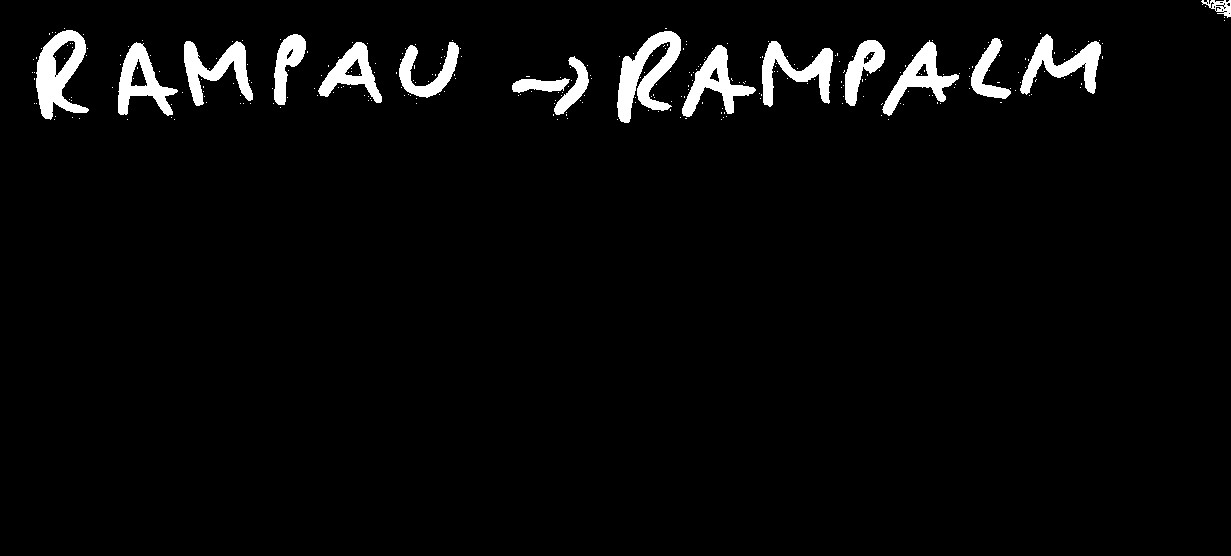 RAMPAU → RAMPALM